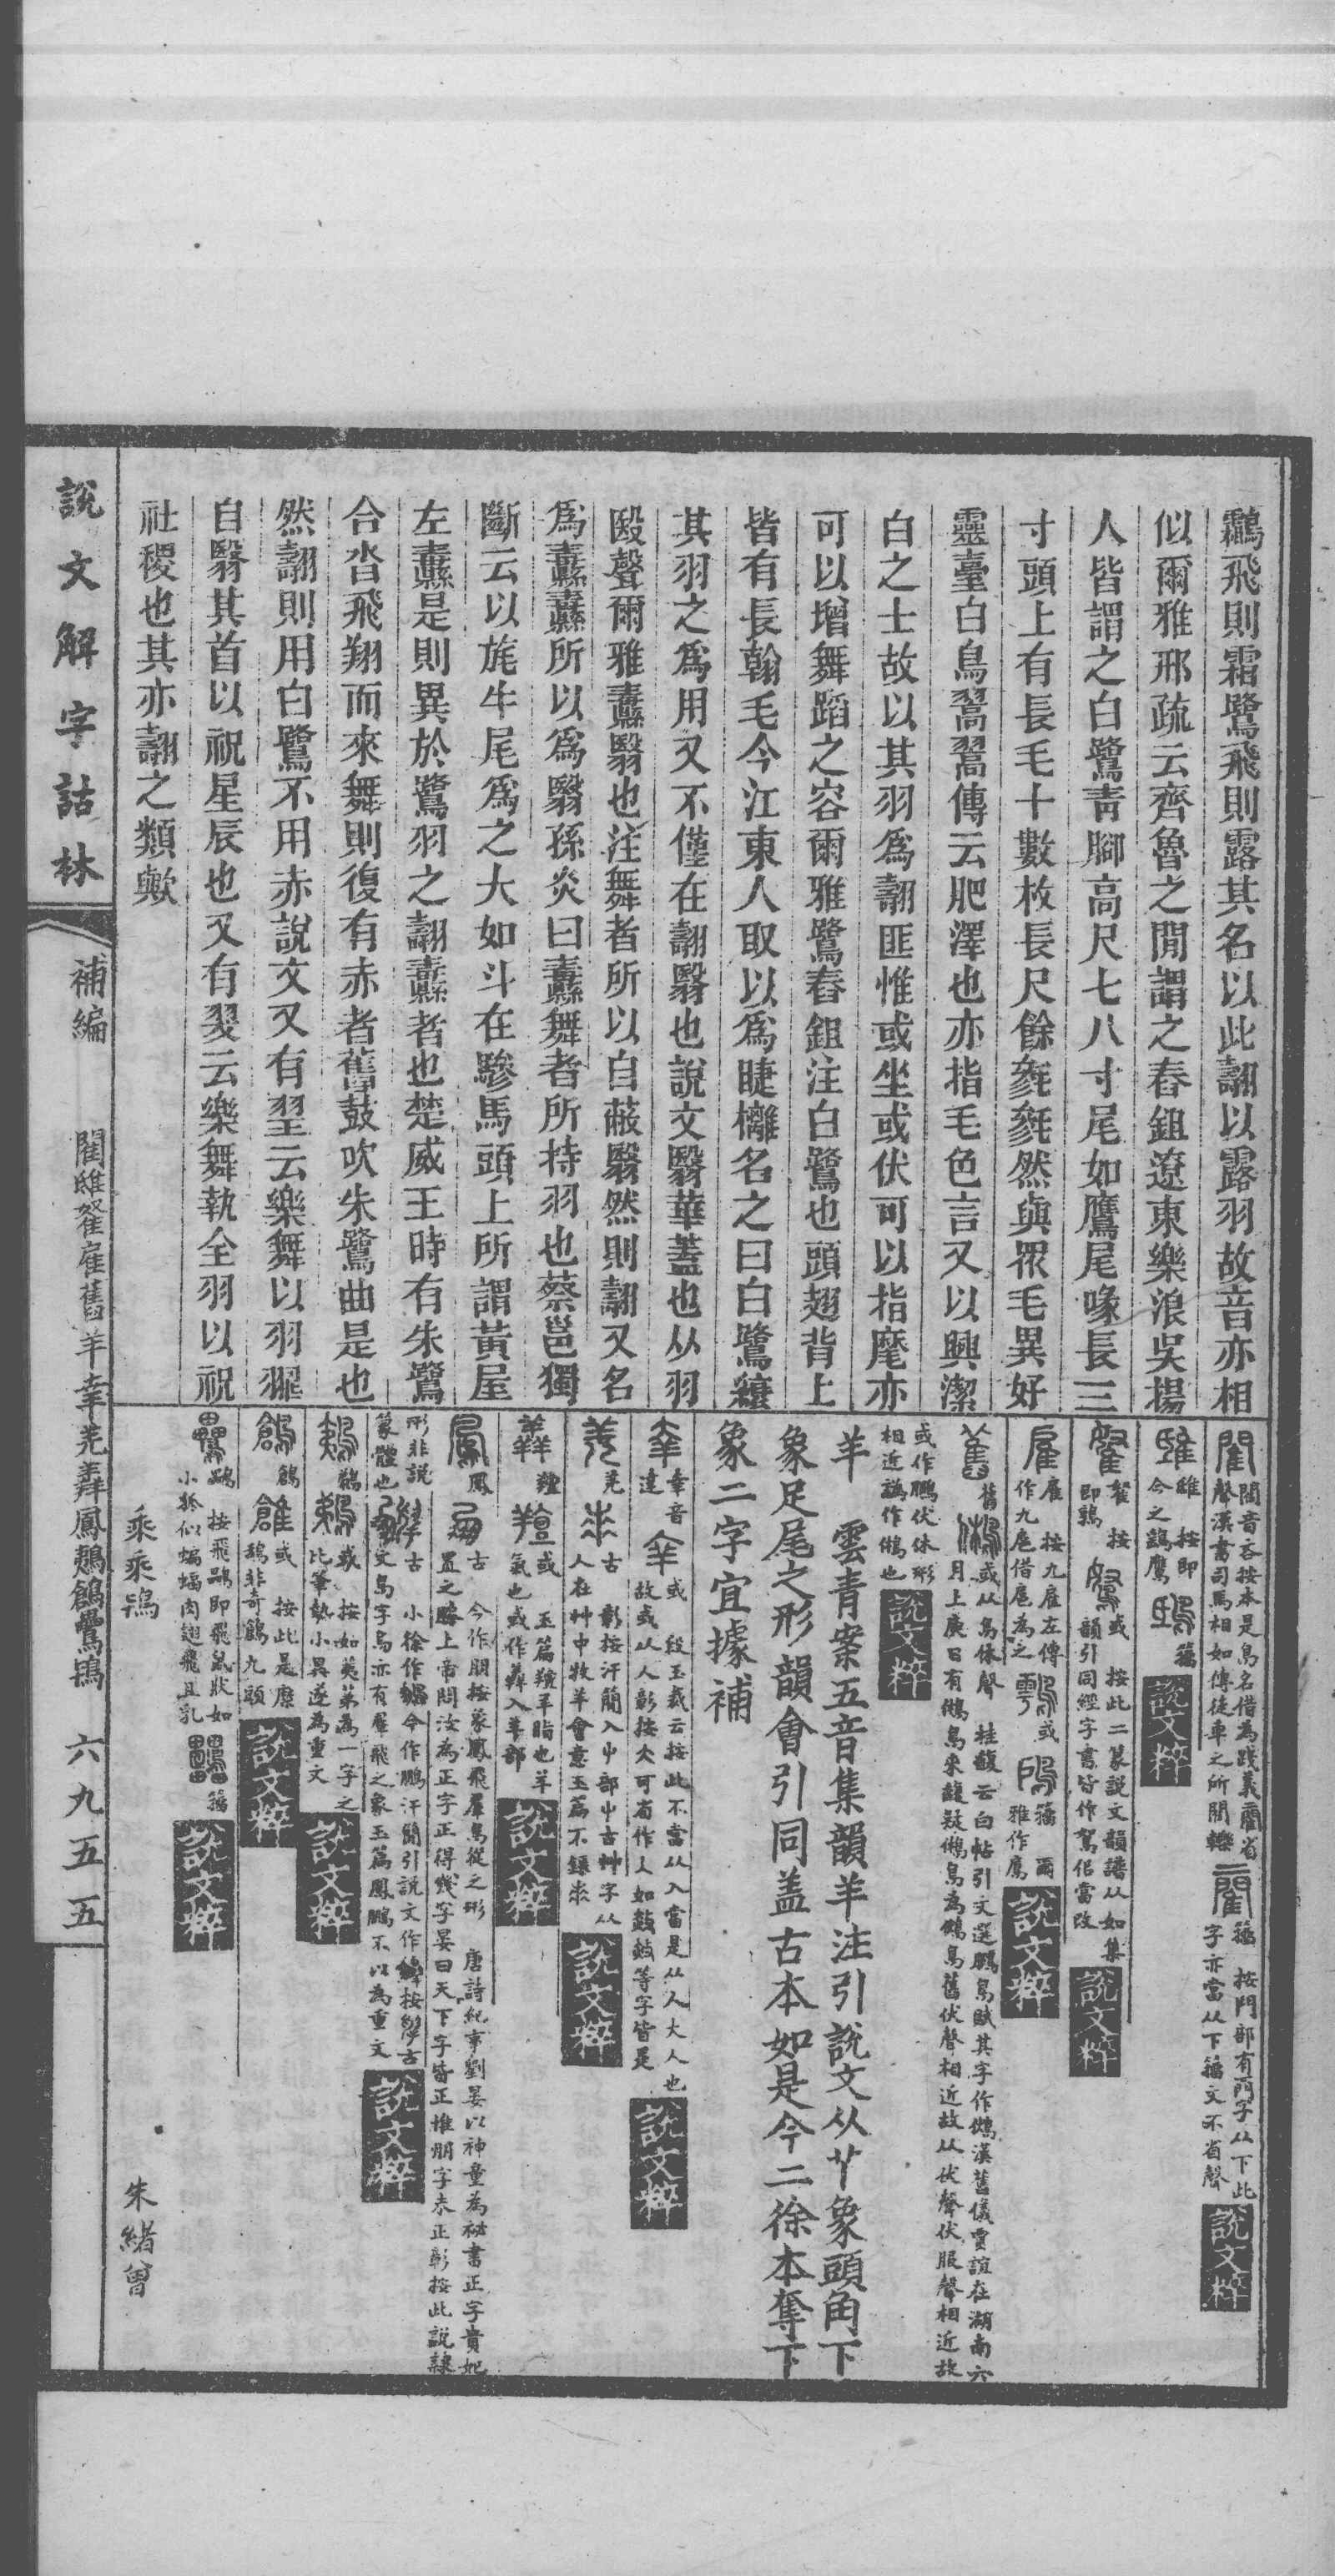 鸘飛則霜鷺飛則露其名以此翿以露羽故音亦相
似爾雅邢疏云齊魯之閒謂之舂鉏遼東樂浪吳揚
人皆謂之白鷺靑腳高尺七八寸尾如鷹尾喙長三
寸頭上有長毛十數枚長尺餘毿毿然與眾毛異好
靈臺白鳥翯翯傳云肥澤也亦指毛色言又以興潔
白之士故以其羽爲翿匪惟或坐或伏可以指麾亦
可以增舞蹈之容爾雅鷺舂鉏注白鷺也頭翅背上
皆有長翰毛今江東人取以爲睫䍦名之曰白鷺縗
其羽之爲用又不僅在翿翳也說文翳華蓋也从羽
殹聲爾雅纛翳也注舞者所以自蔽翳然則翿又名
爲纛纛所以爲翳孫炎曰纛舞者所持羽也蔡邕獨
斷云以旄牛尾爲之大如斗在驂馬頭上所謂黃屋
左纛是則異於鷺羽之翿纛者也楚威王時有朱鷺
合沓飛翔而來舞則復有赤者舊鼓吹朱鷺曲是也
然翿則用白鷺不用赤說文又有翌云樂舞以羽翿
自翳其首以祝星辰也又有翇云樂舞執全羽以祝
社稷也其亦翿之類歟
閵音吝按本是鳥名借為踐義䕲省
聲漢書司馬相如傳徒車之所閵轢
籀 按門部有閵字从下此
字亦當从下籀文不省聲
說文粹
雎 按即
今之鷂鷹
籀
說文粹
按
即鶉
或 按此二篆說文韻譜从如集
韻引同經字書皆作鴽佀當改
說文粹
雇 按九雇左傳
作九扈借扈為之
或
籀 爾
雅作鳸
說文粹
舊
或从鳥休聲 桂馥云白帖引文選鵩鳥賦其字作鵂漢舊儀雲誼在湖南六
月上庚日有鵂鳥來馥疑鵂鳥為鵩鳥舊伏聲相近故从伏聲伏服聲相近故
或作鵩伏休形
相近譌作鵂也
說文粹
羊 雲青案五音集韻羊注引說文从丫象頭角下
象足尾之形韻會引同盖古本如是今二徐本奪下
象二字宜據補
羍音
達
或 段玉裁云按此不當从入當是从人大人也
故或从人彰按大可省作人如鼓鼔等字皆是
說文粹
羌
古 彰按汗簡入屮部屮古艸字从
人在艸中牧羊會意玉篇不錄
說文粹
羶
或 玉篇羶羊脂也羊
氣也或作羴入羊部
說文粹
鳳
古 今作朋按篆鳳飛羣鳥從之形 唐詩紀事劉晏以神童為祕書正字貴妃
置之膝上帝問汝為正字正得幾字晏曰天下字皆正惟朋字未正彰按此說隸
形非說
篆體也
古 小徐作 今作鵬汗簡引說文作 按 古
文鳥字鳥亦有羣飛之象玉篇鳳鵬不以為重文
說文粹
鶇
或 按如荑苐為一字之
比筆埶小異遂為重文
說文粹
鶬
或 按此是麿
鴰非奇鶬九頭
說文粹
鸓
按飛鸓即飛鼠狀如
小狐似蝙蝠肉翅飛且乳
籀
說文粹
說文解字詁林
補編
閵雎䳺雇舊羊羍羌羴鳳鶇鶬鸓鴇
六九五五
乘乘鴇
朱緒曾